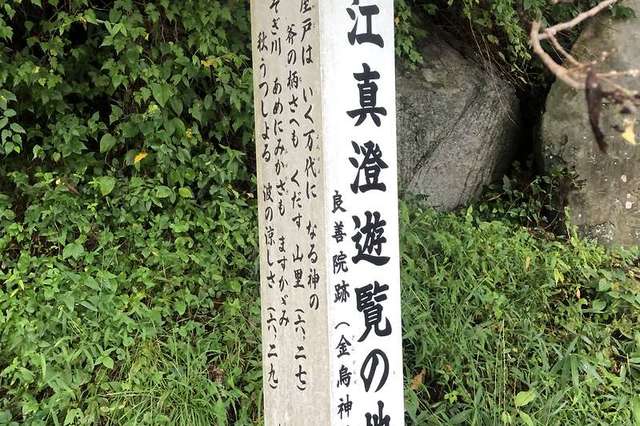 江真澄遊覧の地
良善院跡（金鳥神
戸は いく万代に なる神の
斧の柄さへも くだす 山里（六、二七）
そぎ川 あめにみかさも ますかゞみ
秋うつしよる 波の涼しさ（六、二九）